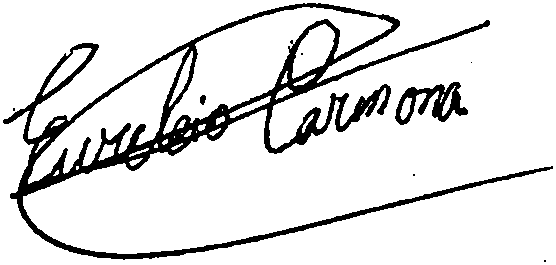 Eurelio Carmona